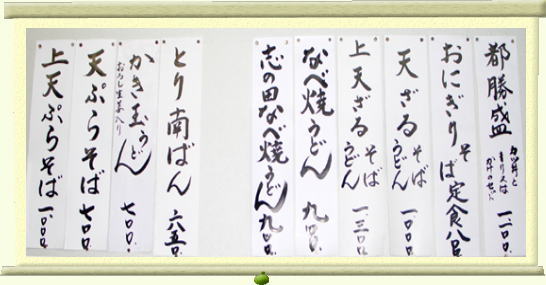 都勝盛 カツ丼と もり又は かけのセット 一、一〇〇
おにぎり そば定食 八〇〇
天ざる そば うどん 一、一〇〇
上天ざる そば うどん 一、三〇〇
なべ焼うどん 九〇〇
志の田なべ焼うどん 九〇〇
とり南ばん 六五〇
かき玉うどん おろし生姜入り 七〇〇
天ぷらそば 七〇〇
上天ぷらそば 一、〇〇〇